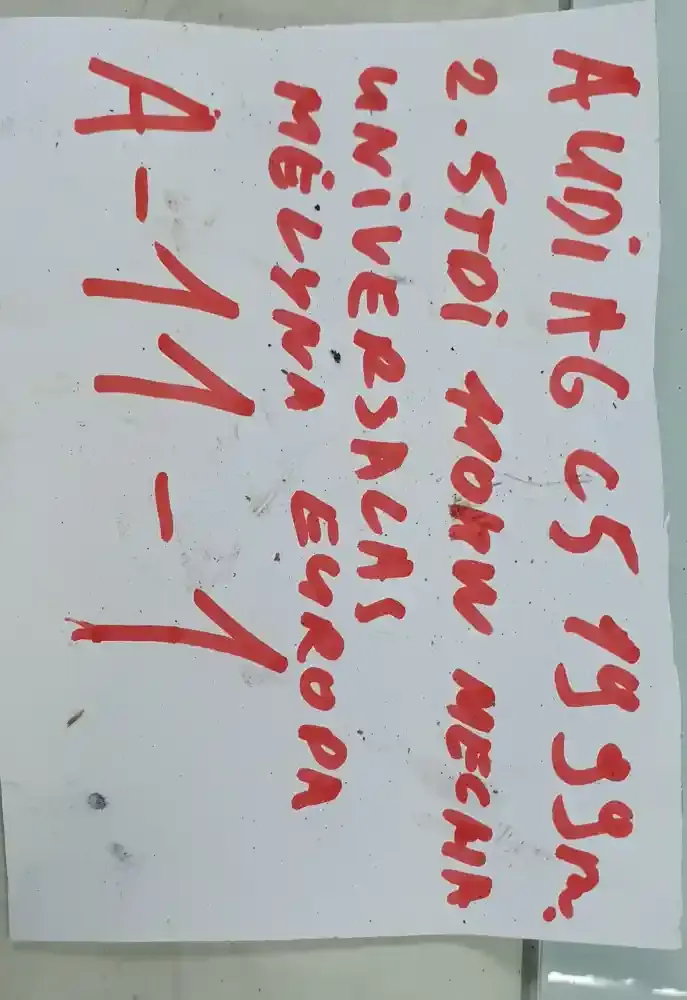 AUDi A6 C5 1999m.
2.5TDi 110KW MECHA
UNiVERSALAS
MĖLYNA EUROPA
A-11-1